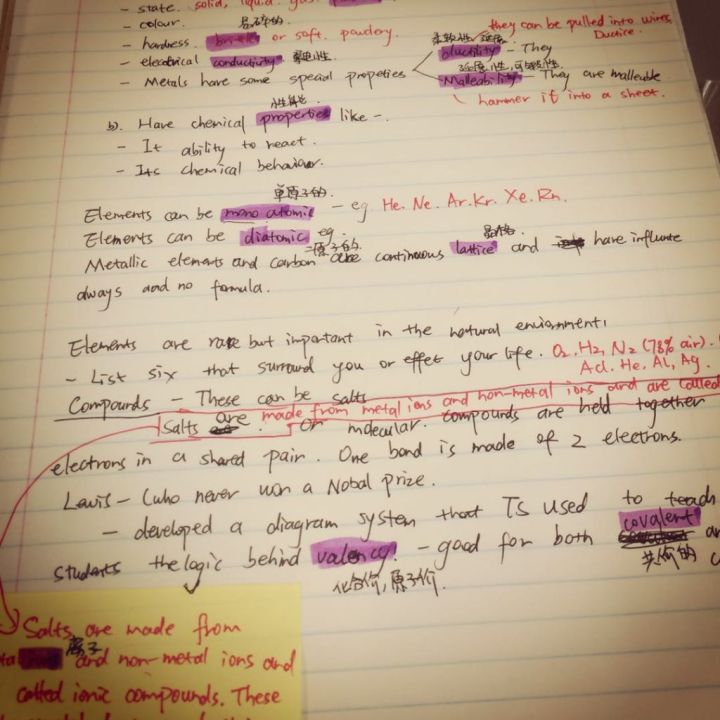 - state. solid, liquid. gas.
- colour. 易碎的
- hardness. brittle or soft. powdery.
- elecatrical conductivity.
they can be pulled into wires
Ductice.
ductility - They
- Metals have some special propeties
Malleability - They are malleable
hammer it into a sheet.
b). Have chemical properties like -.
- It ability to react.
- Itc chemical behaviour.
单原子的
Elements can be mono atomic - eg He. Ne. Ar. Kr. Xe. Rn.
Elements can be diatomic eg.
二原子的 晶格
Metallic elements and carbon are continuous lattice and have influnte
always and no formula.
Elements are rare but important in the natural enviornment,
- List six that surround you or effet your life. O2, H2, N2 (78% air).
Acl. He, Al, Ag.
Compounds - These can be salts
Salts are made from metal ions and non-metal ions and are called
or molecular. compounds are held together
electrons in a shared pair. One bond is made of 2 electrons.
Lewis - (who never won a Nobal prize.
- developed a diagram system that Ts used to teach
students the logic behind valency! - good for both covalent
化合价, 原子价. 共价的
Salts are made from
离子
and non-metal ions and
called ionic compounds. These